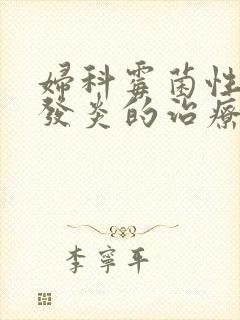 婦科霉菌性
發炎的治療
李寧平